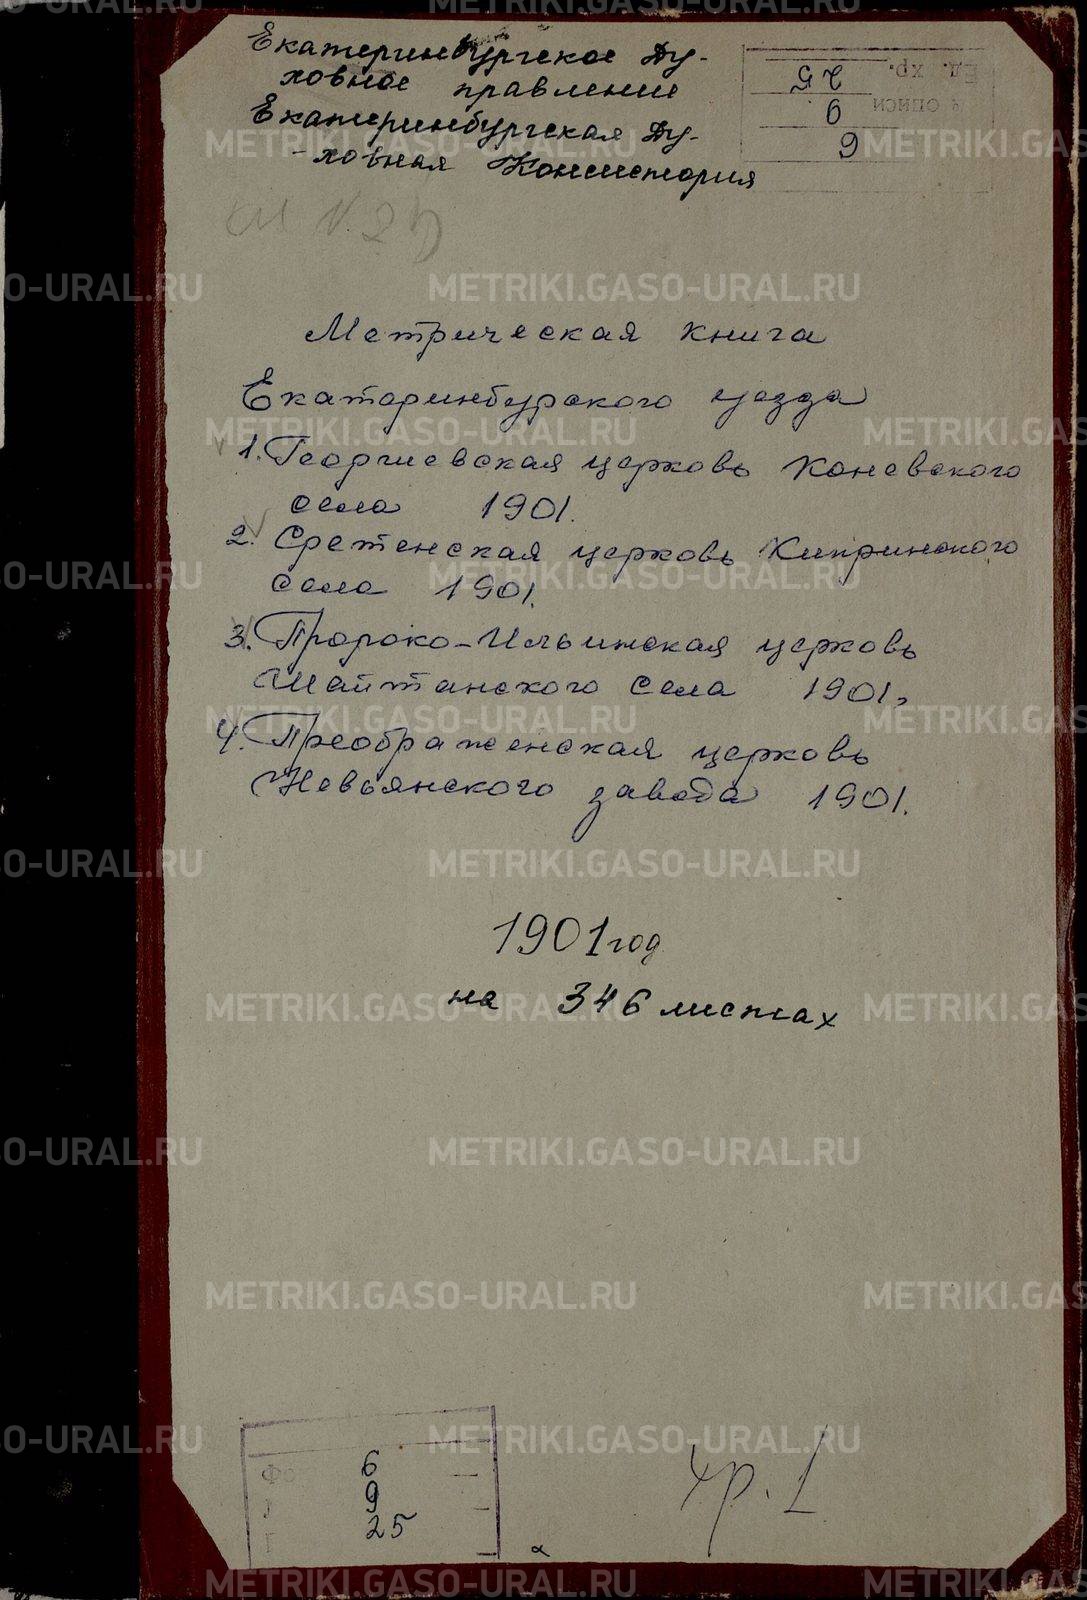 Екатеринбургское Ду-
ховное правление
Екатеринбургская Ду-
-ховная Консистория
Ед. хр. 25
№ описи 9
6
Метрическая книга
Екатеринбурского уезда
1. Георгиевская церковь Коневского
села 1901.
2. Сретенская церковь Киприноского
села 1901.
3. Пророко-Ильинская церковь
Шайтанского села 1901.
4. Преображенская церковь
Невьянского завода 1901.
1901 год
на 346 листах
6
9
25
хр. 1
METRIKI.GASO-URAL.RU